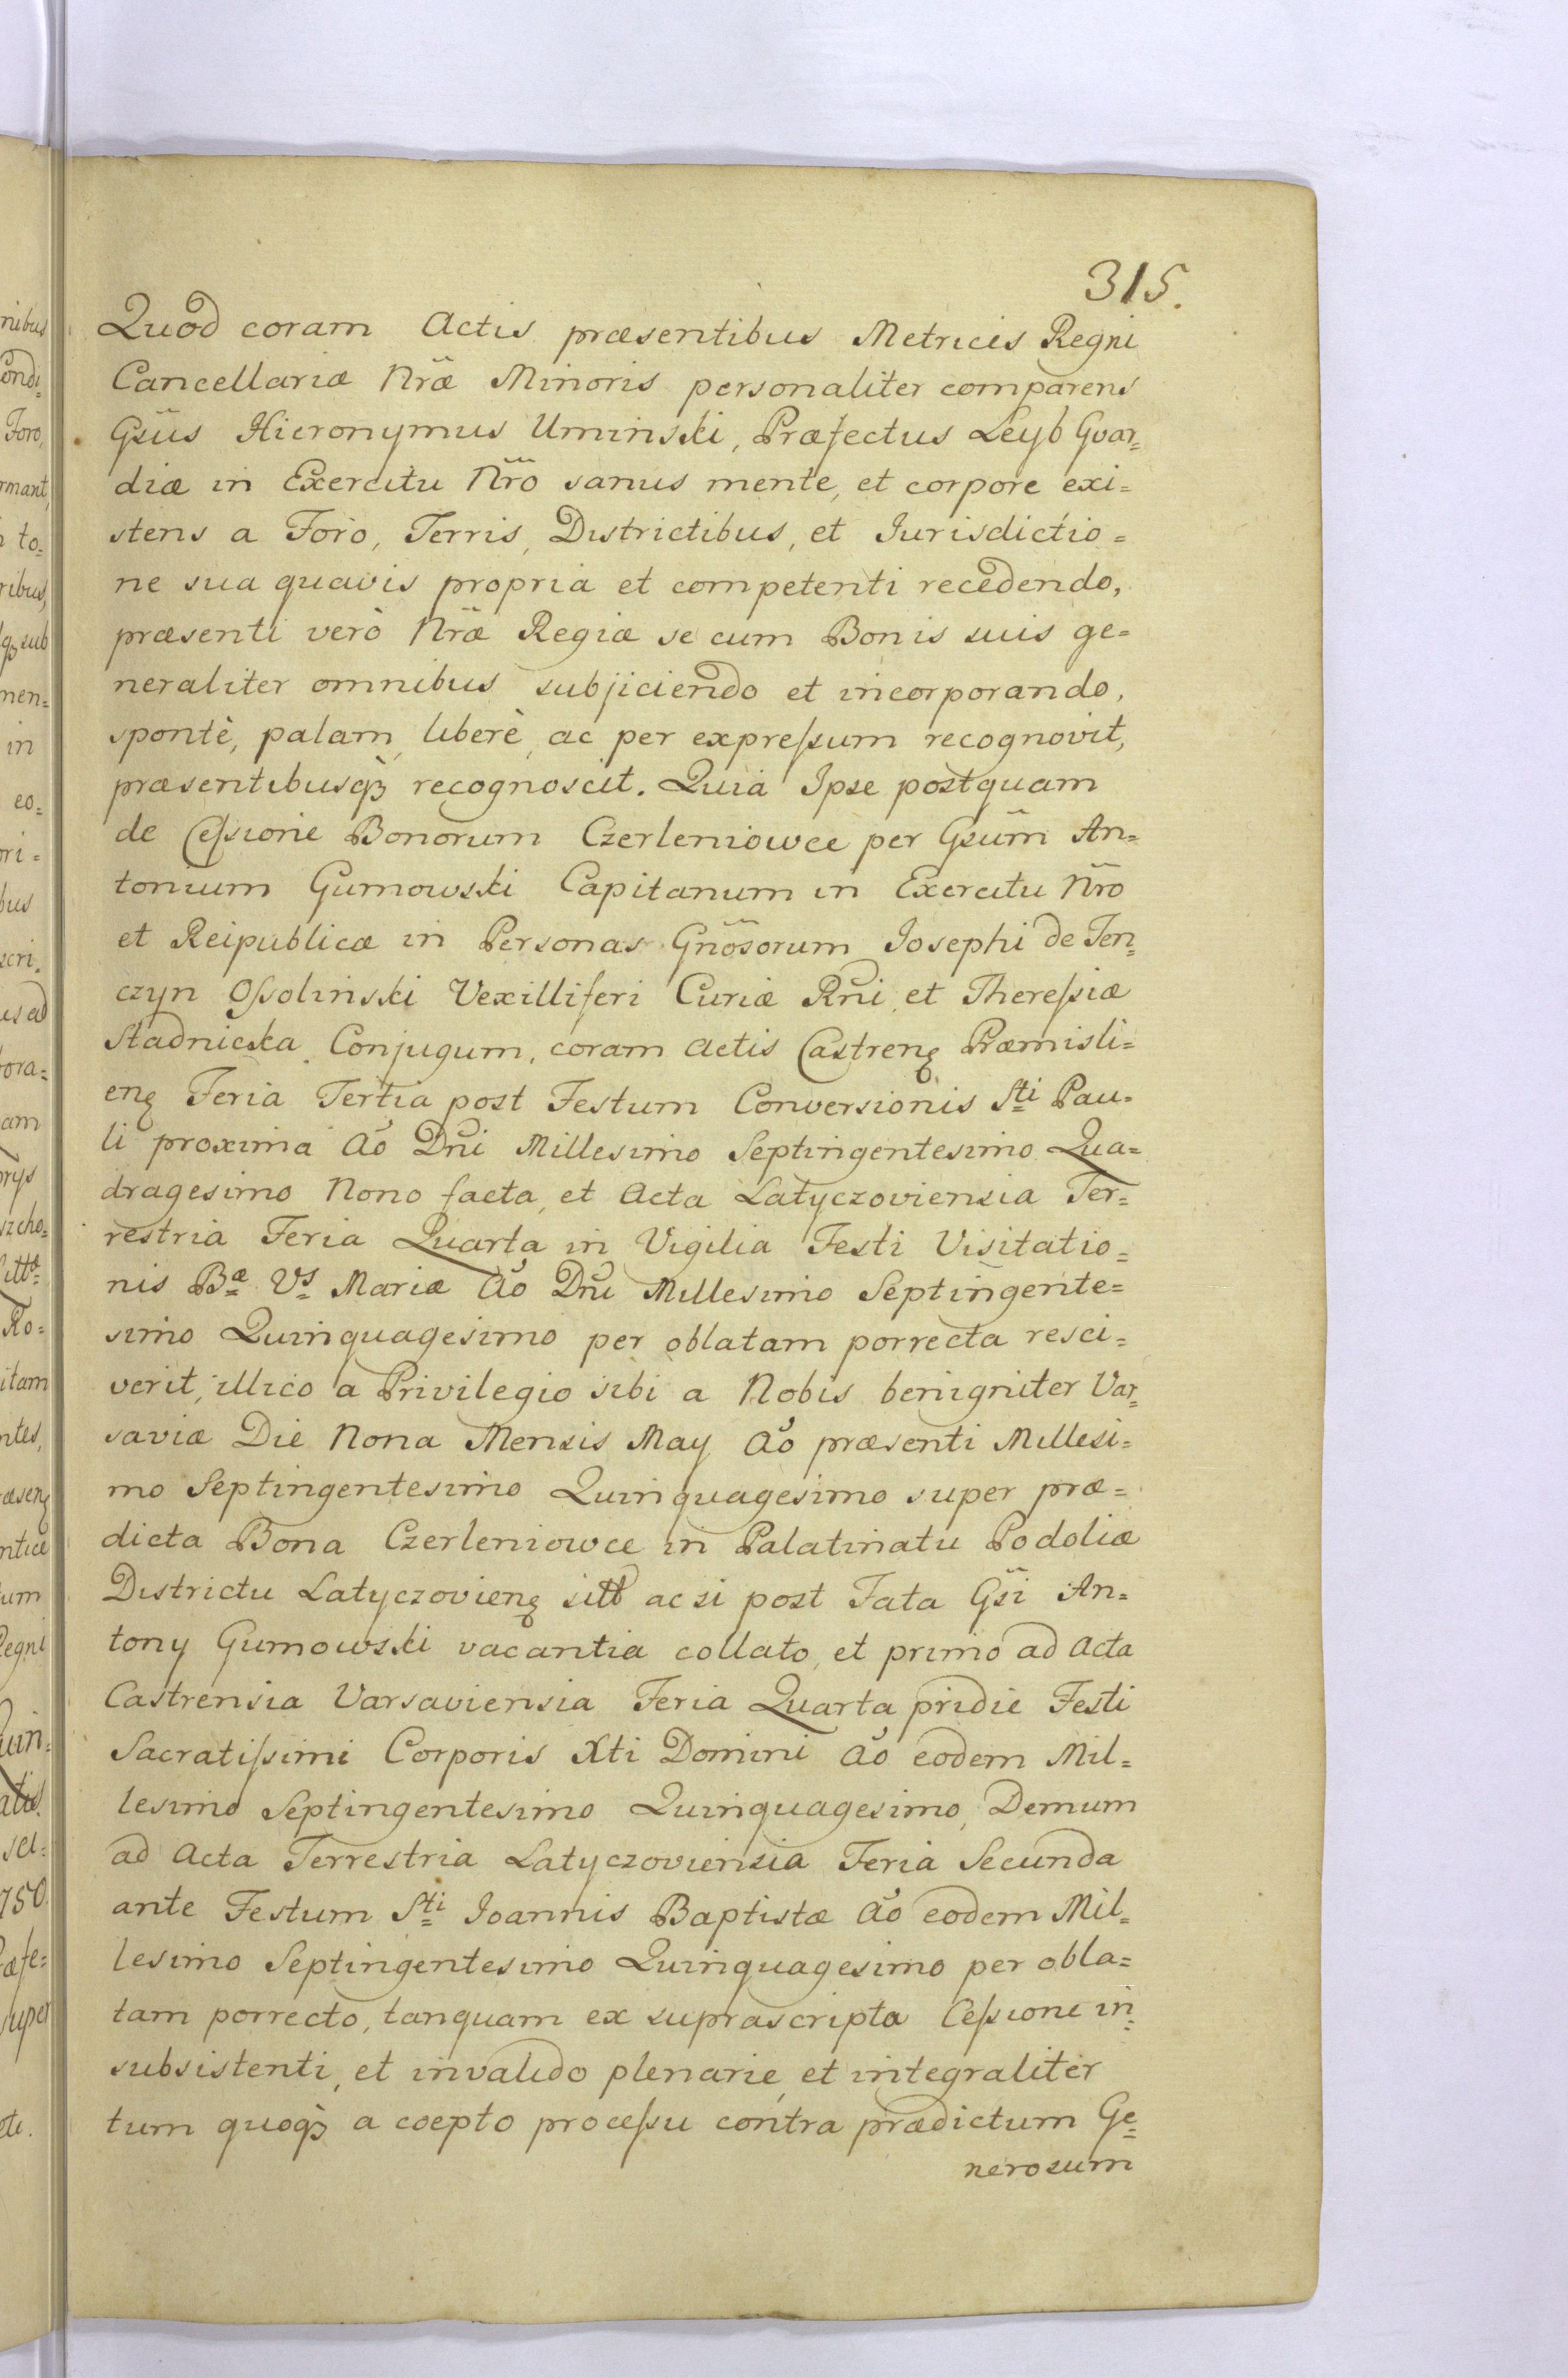 315.
Quod coram Actis præsentibus Metricis Regni
Cancellariæ Nr̃æ Minoris personaliter comparens
Gsũs Hieronymus Uminski, Præfectus Leyb Gvar=
diæ in Exercitu Nr̃o sanus mente, et corpore exi=
stens a Foro, Terris, Districtibus, et Jurisdictio=
ne sua quavis propria et competenti recedendo,
præsenti verò Nr̃æ Regiæ se cum Bonis suis ge=
neraliter omnibus subjiciendo et incorporando,
spontè, palam, liberè, ac per expreſsum recognovit,
præsentibusqꝫ recognoscit. Quia Ipse postquam
de Ceſsione Bonorum Czerleniowce per Gsũm An=
tonium Gumowski Capitanum in Exercitu Nr̃o
et Reipublicæ in Personas Gnõsorum Josephi de Ten=
czyn Oſsolinski Vexilliferi Curiæ Rñi, et Thereſsiæ
Stadnicska Conjugum, coram Actis Castrenꝫ Præmisli=
enꝫ Feria Tertia post Festum Conversionis Sti Pau=
li proxima Aõ Dñi Millesimo Septingentesimo Qua=
dragesimo Nono facta, et Acta Latyczoviensia Ter=
restria Feria Quarta in Vigilia Festi Visitatio=
nis Bæ Vs Mariæ Aõ Dñi Millesimo Septingente=
simo Quinquagesimo per oblatam porrecta resci=
verit, illico a Privilegio sibi a Nobis benigniter Var=
saviæ Die Nona Mensis May Aõ præsenti Millesi=
mo Septingentesimo Quinquagesimo super præ=
dicta Bona Czerleniowce in Palatinatu Podoliæ
Districtu Latyczovienꝫ sitt ac si post Fata Gsĩ An=
tony Gumowski vacantia collato, et primo ad Acta
Castrensia Varsaviensia Feria Quarta pridie Festi
Sacratiſsimi Corporis Xti Domini Aõ eodem Mil=
lesimo Septingentesimo Quinquagesimo, Demum
ad Acta Terrestria Latyczoviensia Feria Secunda
ante Festum Sti Joannis Baptistæ Aõ eodem Mil=
lesimo Septingentesimo Quinquagesimo per obla=
tam porrecto, tanquam ex suprascripta Ceſsione in=
subsistenti, et invalido plenarie, et integraliter
tum quoqꝫ a coepto proceſsu contra prædictum Ge=
nerosum